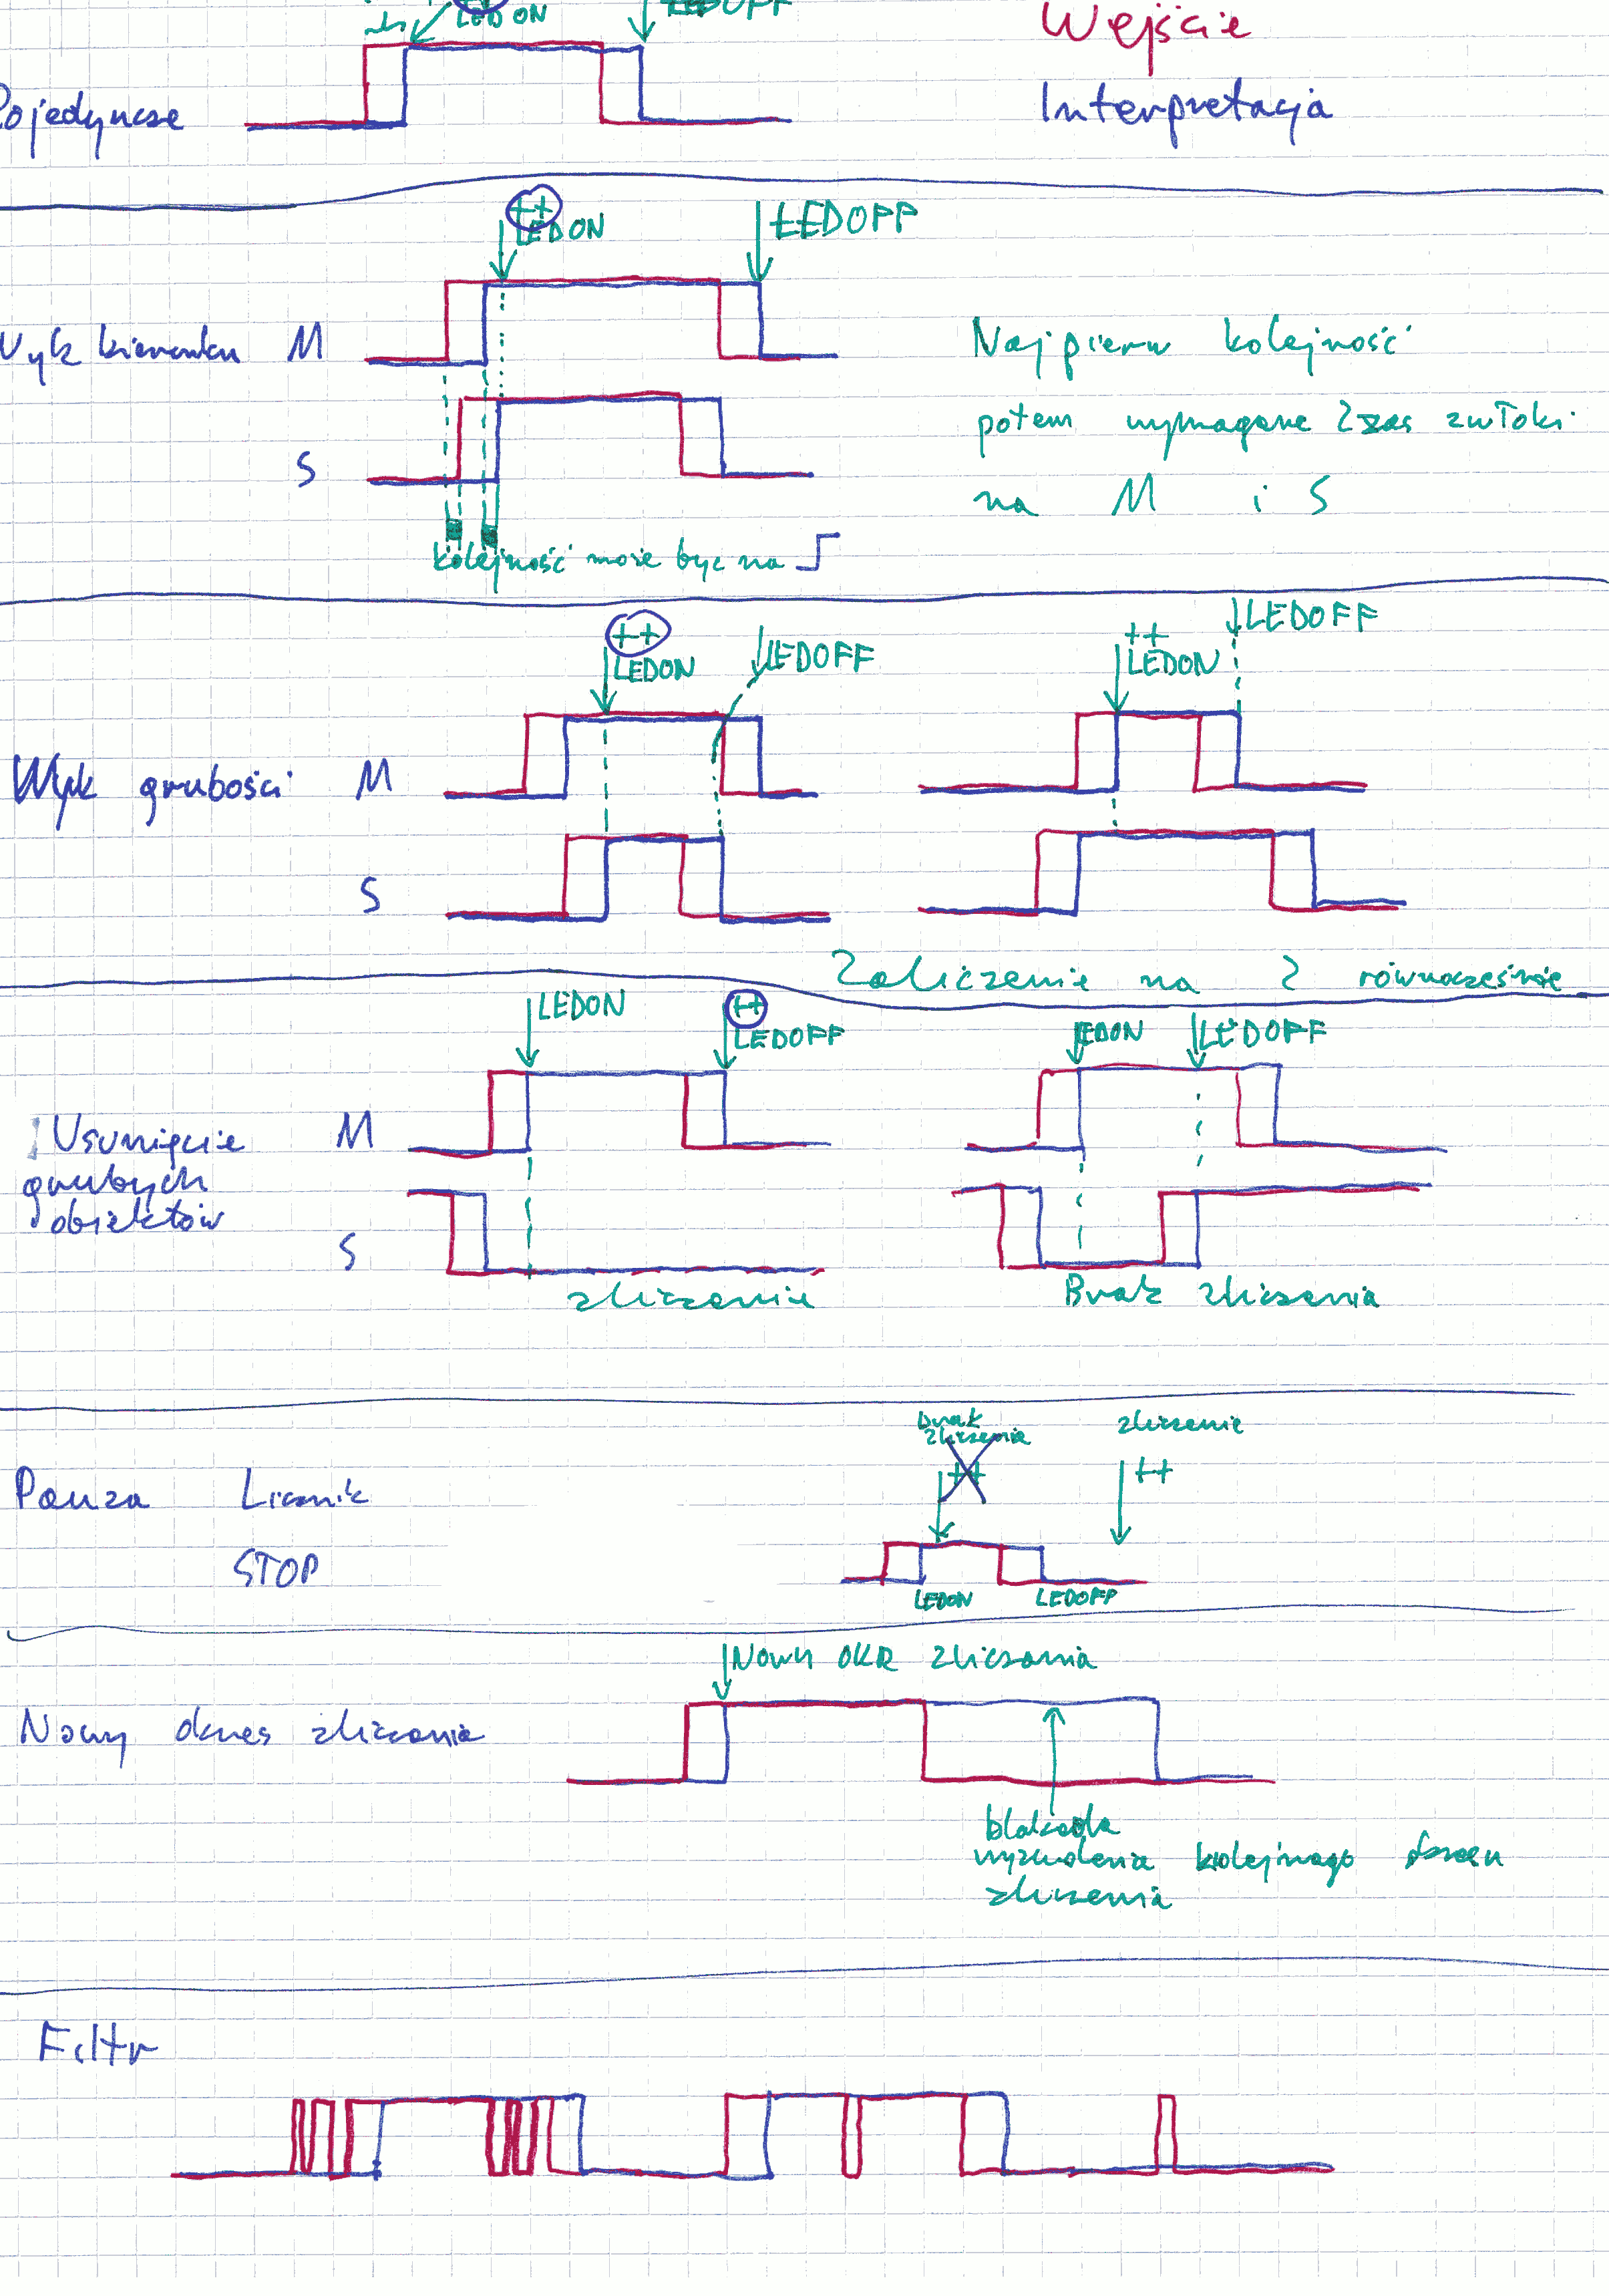 LEDON
LEDOFF
Wejście
Pojedyncze
Interpretacja
++
LEDON
LEDOFF
Wyk kierunku M
Najpierw kolejność
potem wymagane czas zwłoki
S
na M i S
kolejność może być na
++
LEDON
LEDOFF
++
LEDON
LEDOFF
Wyk grubości M
S
Zaliczenie na 2 równocześnie
LEDON
++
LEDOFF
LEDON
LEDOFF
Usunięcie
grubych
obiektów
M
S
zliczenie
Brak zliczenia
brak
zliczenia
++
zliczenie
++
Pauza Licznik
STOP
LEDON
LEDOFF
Nowy OKR zliczania
Nowy okres zliczania
blokada
wyzwolenia kolejnego okresu
zliczenia
Filtr